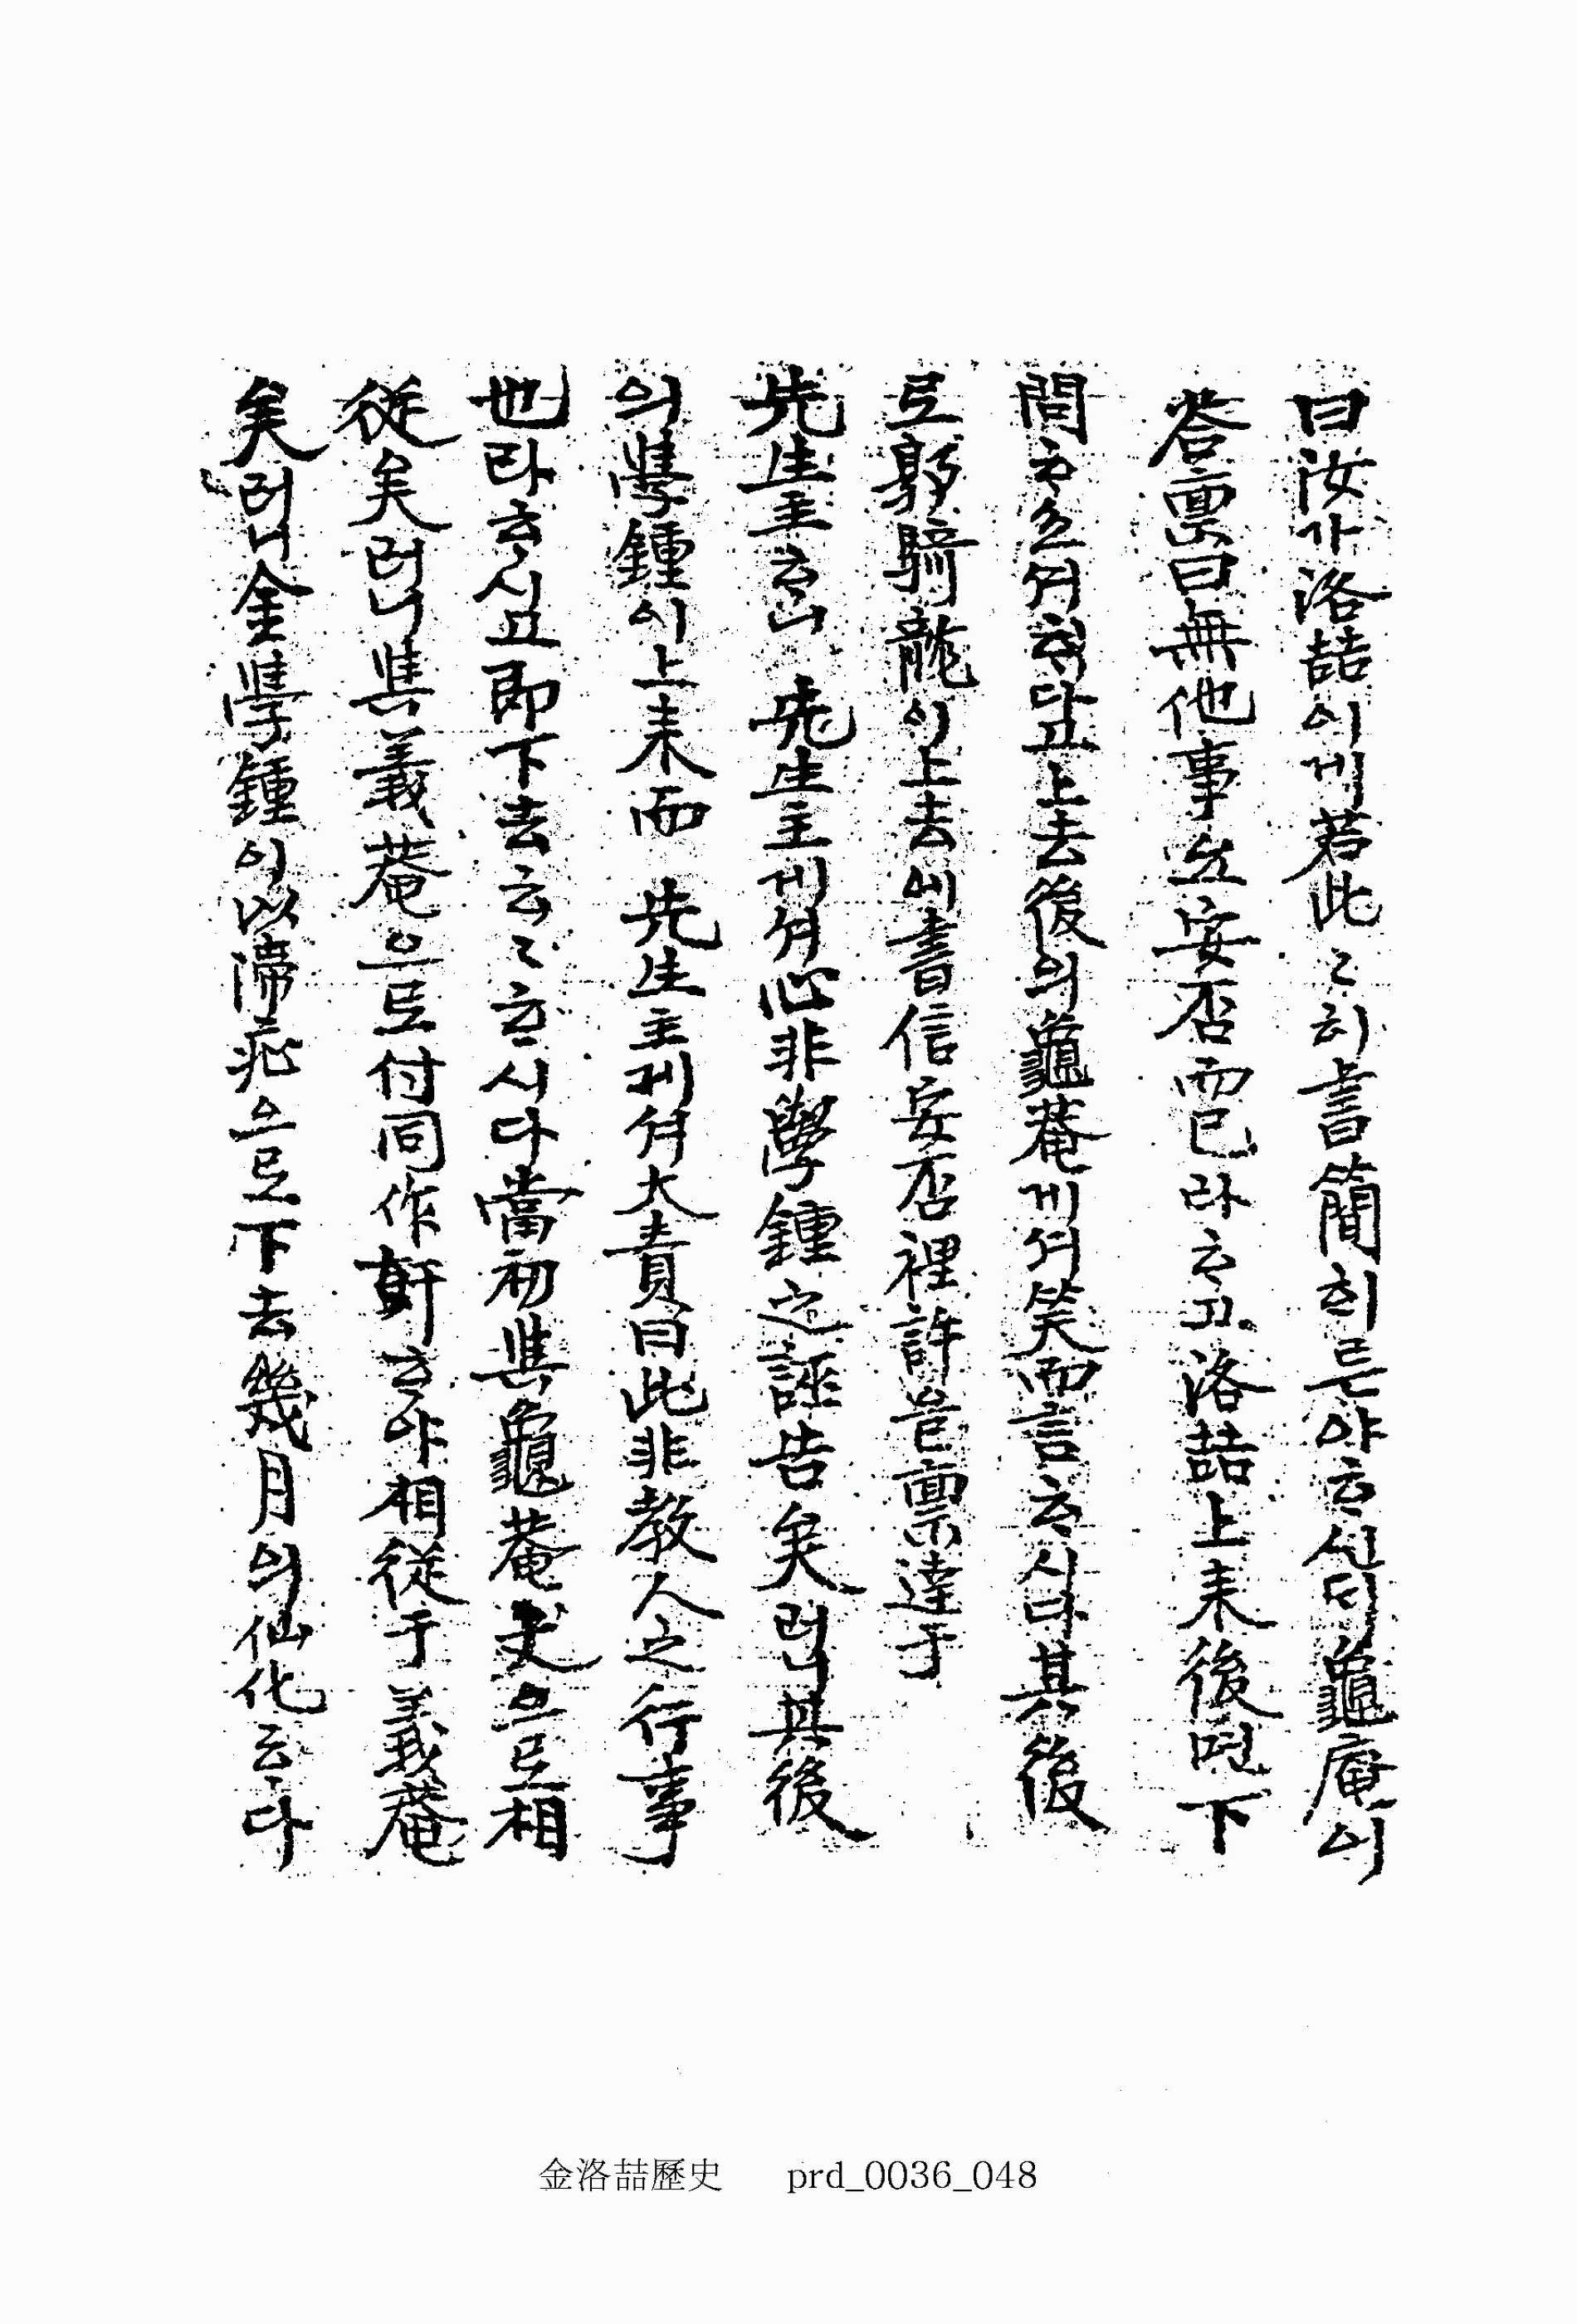 曰汝가洛喆이게若此〻히書簡히든야 ᄒᆞ신ᄃᆡ龜庵이
答禀曰無他事요安否而已라ᄒᆞ고洛喆上来後면下
問ᄒᆞ쇼셔ᄒᆞ다고上去後의龜菴게셔笑而言ᄒᆞ시다其後
로郭騎龍이上去시書信安否裡許을禀達于
先生主ᄒᆞ니 先生主게셔心非學鍾之誣告矣러니其後
의學鍾이上来而 先生主게셔大責曰此非教人之行事
也라ᄒᆞ시고即下去云〻ᄒᆞ시다當初與龜菴丈으로相
從矣러니與義菴으로付同作奸ᄒᆞ야相従于義菴
矣러니金學鍾이以滯症으로下去幾月의仙化ᄒᆞ다
金洛喆歷史 prd_0036_048